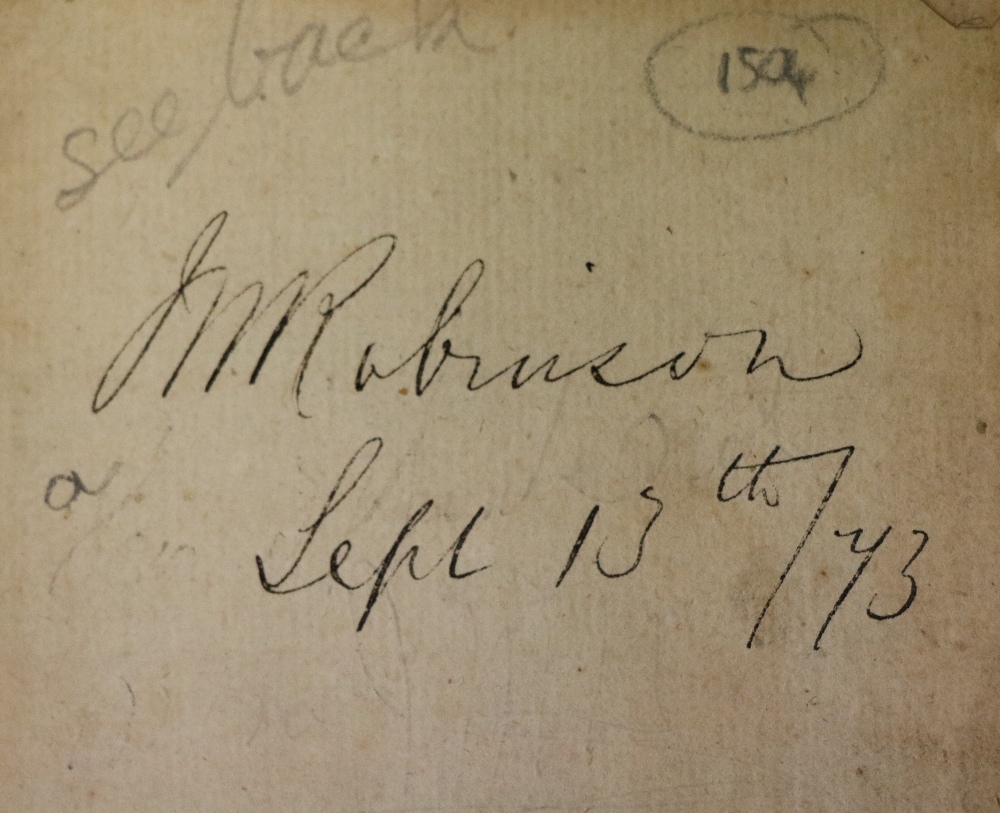 see back
1504
JMRobinson
a
Sept 13th/73